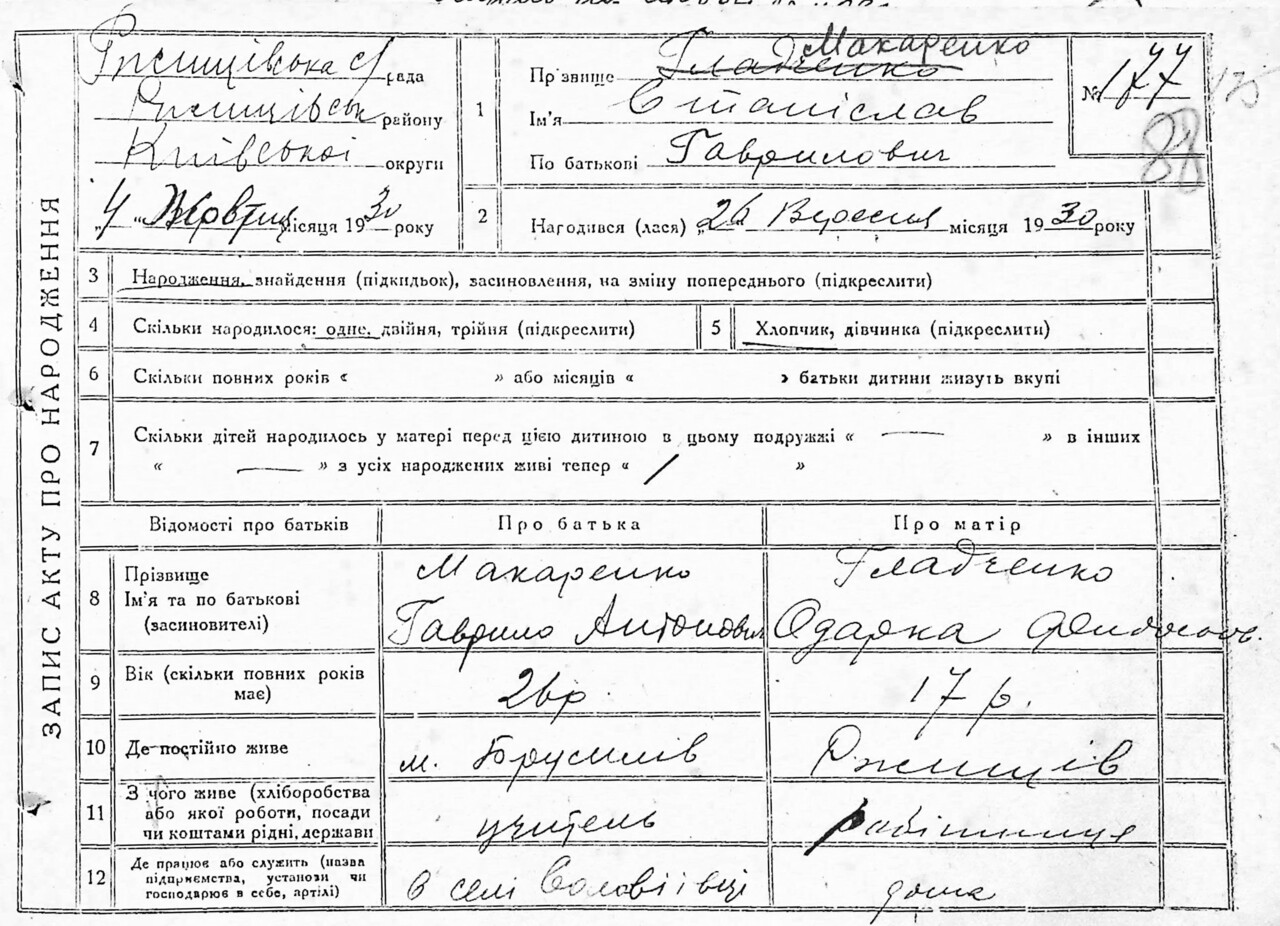 ЗАПИС АКТУ ПРО НАРОДЖЕННЯ
Ржищівська с/рада
Ржищівськ району
Київської округи
„4“ Жовтня місяця 1930 року
1
Прізвище Гладченко Макаренко
Ім'я Станіслав
По батькові Гаврилович
№ 177
77
88
2
Народився (лася) Вересня місяця 1930 року
3 Народження, знайдення (підкидьок), засиновлення, на зміну попереднього (підкреслити)
4 Скільки народилося: одне, двійня, трійня (підкреслити)
5 Хлопчик, дівчинка (підкреслити)
6 Скільки повних років « » або місяців « » батьки дитини живуть вкупі
7 Скільки дітей народилось у матері перед цією дитиною в цьому подружжі « — » в інших
« — » з усіх народжених живі тепер « / »
Відомості про батьків
Про батька
Про матір
8 Прізвище
Ім'я та по батькові
(засиновителі)
Макаренко
Гаврило Антонович
Гладченко
Одарка
9 Вік (скільки повних років
має)
26 р.
17 р.
10 Де постійно живе
м. Брусилів
Ржищів
11 З чого живе (хліборобства
або якої роботи, посади
чи коштами рідні, держави
учитель
робітниця
12 Де працює або служить (назва
підприємства, установи чи
господарює в себе, артілі)
в селі
дома